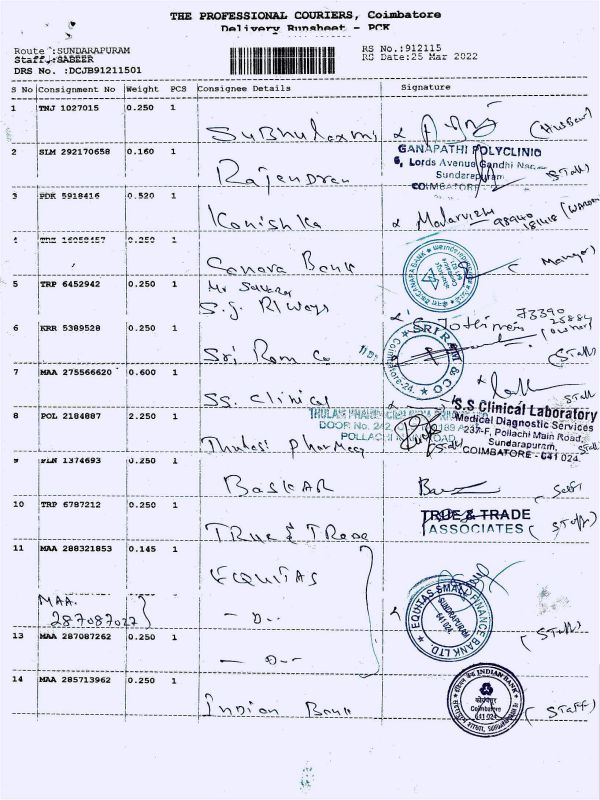 THE PROFESSIONAL COURIERS, Coimbatore
Delivery Runsheet - PCK
Route :SUNDARAPURAM
RS No.:912115
Staff :SABEER
RG Date:25 Mar 2022
DRS No. :DCJB91211501
S No Consignment No Weight PCS Consignee Details Signature
1 TNJ 1027015 0.250 1
Subhulaxmi (Husban)
2 SLM 292170658 0.160 1
Rajendran
GANAPATHI POLYCLINIC
6, Lords Avenue Gandhi Nagar
Sundarapuram
COIMBATORE
(Staff)
3 PDK 5918416 0.520 1
Kanishka Malarvizhi 98940
1 0.250
Canara Bank
CANARA BANK
Manager
5 TRP 6452942 0.250 1
Mr
S.G. Rlways
Jothimani 73390
(owner)
6 KRR 5389528 0.250 1
Sri Ram Co
SRI RAM & CO
Coimbatore-24
(Staff)
7 MAA 275566620 0.600 1
SS. Clinical
S.S Clinical Laboratory
Medical Diagnostic Services
237-F, Pollachi Main Road,
Sundarapuram,
COIMBATORE - 641 024.
Staff
8 POL 2184887 2.250 1
Thulasi Pharmacy
DOOR No. 242,
POLLACHI MAIN ROAD
Staff
1374693 0.250 1
BASKAR Self
10 TRP 6787212 0.250 1
True & Trade
TRUE & TRADE
ASSOCIATES
(Staff)
11 MAA 288321853 0.145 1
EQUITAS
MAA.
287087027
- D--
EQUITAS SMALL FINANCE BANK LTD.
SUNDRAPURAM
641 024
(Staff)
13 MAA 287087262 0.250 1
- D--
14 MAA 285713962 0.250 1
Indian Bank
INDIAN BANK
Coimbatore
641 024
(Staff)